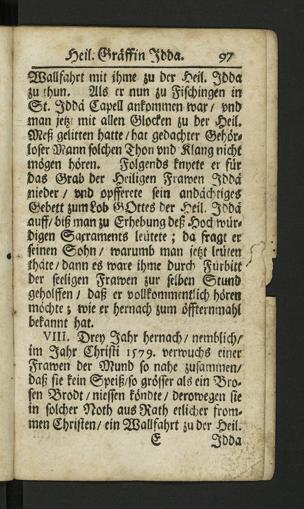 Heil. Gräffin Idda. 97
Wallfahrt mit ihme zu der Heil. Idda
zu thun. Als er nun zu Fischingen in
St. Iddä Capell ankommen war / vnd
man jetz mit allen Glocken zu der Heil.
Meß gelitten hatte / hat gedachter Gehör-
loser Mann solchen Thon vnd Klang nicht
mögen hören. Folgends knyete er für
das Grab der Heiligen Frawen Iddä
nieder / vnd opfferete sein andächtiges
Gebett zum Lob GOttes der Heil. Iddä
auff / biß man zu Erhebung deß Hoch wür-
digen Sacraments leütete ; da fragt er
seinen Sohn / warumb man jetzt leüten
thäte / dann es ware ihme durch Fürbitt
der seeligen Frawen zur selben Stund
geholffen / daß er vollkommentlich hören
möchte ; wie er hernach zum öffternmahl
bekannt hat.
VIII. Drey Jahr hernach / nemblich /
im Jahr Christi 1579. verwuchs einer
Frawen der Mund so nahe zusammen /
daß sie kein Speiß / so grösser als ein Bro-
sen Brodt / niessen köndte / derowegen sie
in solcher Noth aus Rath etlicher from-
men Christen / ein Wallfahrt zu der Heil.
E Idda